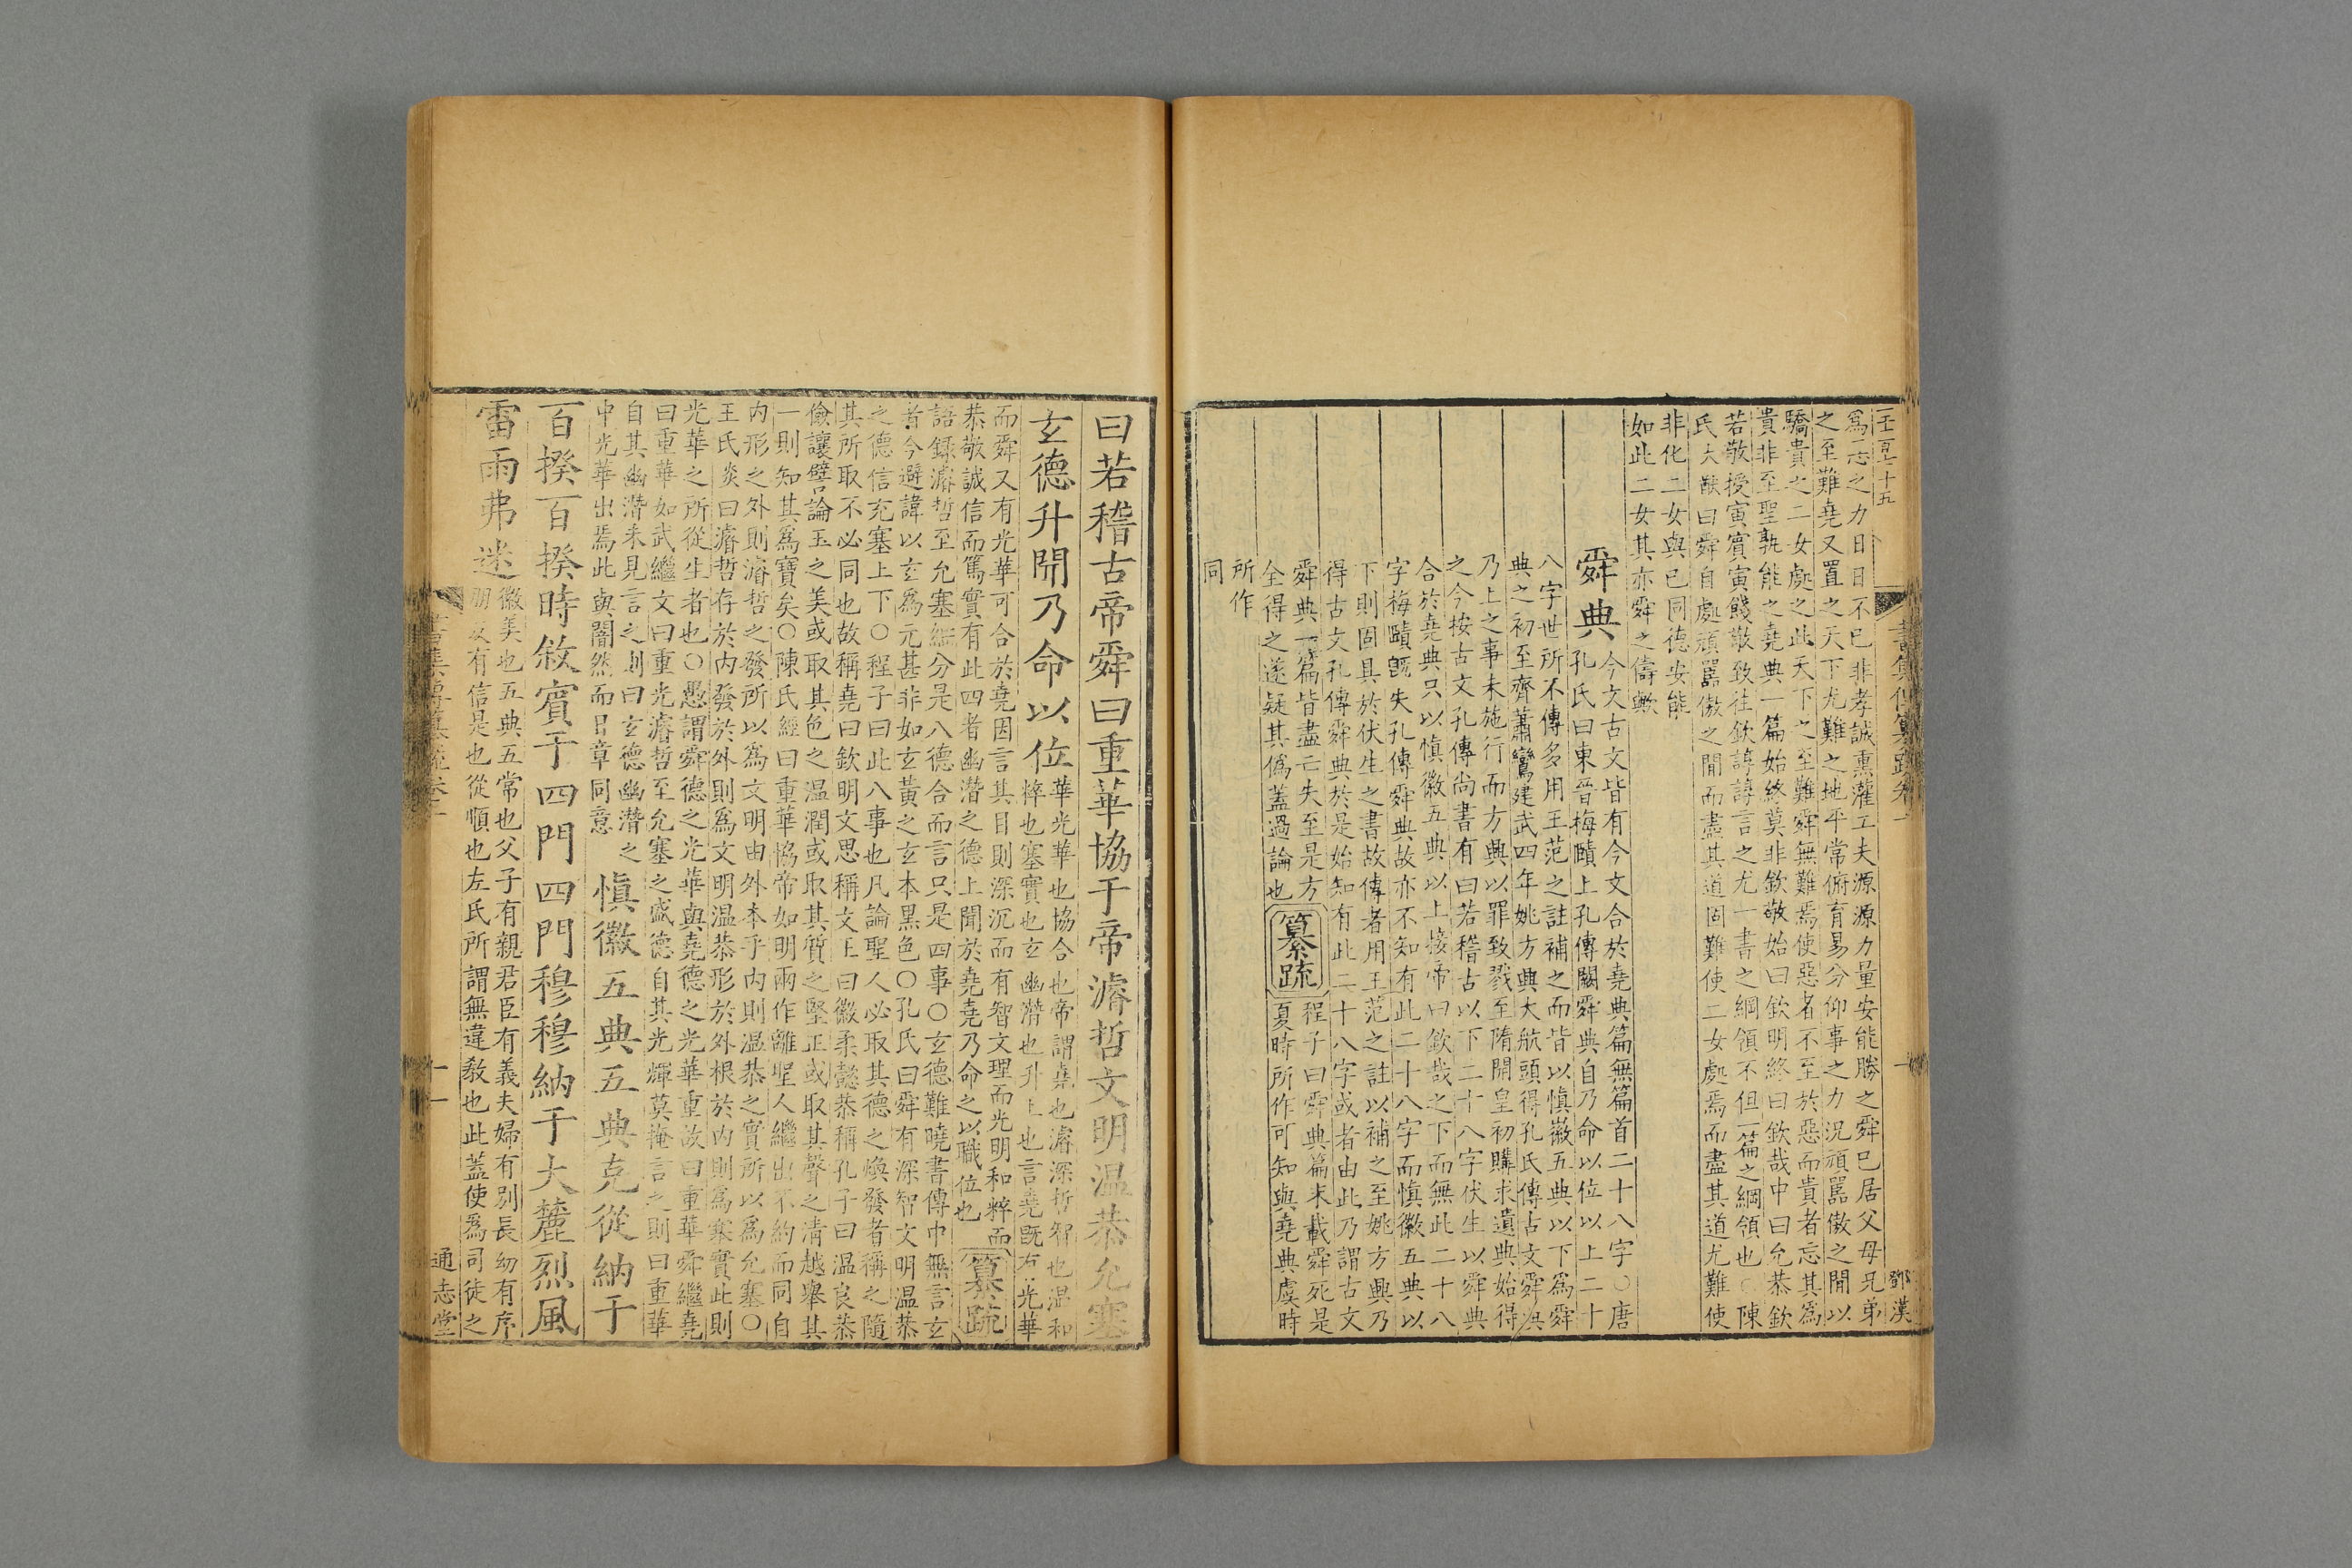 壬百十五
書集傳纂疏卷一
鄧漢
爲二志之力日日不已非孝誠熏灌工夫源源力量安能勝之舜已居父母兄弟
之至難堯又置之天下尤難之地平常俯育易分仰事之力況頑嚚傲之閒以
驕貴之二女處之此天下之至難舜無難焉使惡者不至於惡而貴者忘其爲
貴非至聖孰能之堯典一篇始終莫非欽敬始曰欽明終曰欽哉中曰允恭欽
若敬授寅賓寅餞敬致往欽諄諄言之尤一書之綱領不但一篇之綱領也○陳
氏大猷曰舜自處頑嚚傲之閒而盡其道固難使二女處焉而盡其道尤難使
非化二女與已同德安能
如此二女其亦舜之儔歟
舜典
今文古文皆有今文合於堯典篇無篇首二十八字○唐
孔氏曰東晉梅賾上孔傳闕舜典自乃命以位以上二十
八字世所不傳多用王范之註補之而皆以愼徽五典以下爲舜
典之初至齊蕭鸞建武四年姚方典大航頭得孔氏傳古文舜典
乃上之事未施行而方典以罪致戮至隋開皇初購求遺典始得
之今按古文孔傳尚書有曰若稽古以下二十八字伏生以舜典
合於堯典只以愼徽五典以上接帝曰欽哉之下而無此二十八
字梅賾旣失孔傳舜典故亦不知有此二十八字而愼徽五典以
下則固具於伏生之書故傳者用王范之註以補之至姚方興乃
得古文孔傳舜典於是始知有此二十八字或者由此乃謂古文
舜典一篇皆盡亡失至是方
全得之遂疑其僞蓋過論也
纂疏
程子曰舜典篇末載舜死是
夏時所作可知與堯典虞時
所作
同
曰若稽古帝舜曰重華協于帝濬哲文明温恭允塞
玄德升聞乃命以位
華光華也協合也帝謂堯也濬深哲智也温和
粹也塞實也玄幽潛也升上也言堯旣有光華
而舜又有光華可合於堯因言其目則深沉而有智文理而光明和粹而
恭敬誠信而篤實有此四者幽潛之德上聞於堯堯乃命之以職位也
纂疏
語錄濬哲至允塞細分是八德合而言只是四事○玄德難曉書傳中無言玄
者今避諱以玄爲元甚非如玄黃之玄本黑色○孔氏曰舜有深智文明温恭
之德信充塞上下○程子曰此八事也凡論聖人必取其德之煥發者稱之隨
其所取不必同也故稱堯曰欽明文思稱文王曰徽柔懿恭稱孔子曰温良恭
儉讓譬論玉之美或取其色之温潤或取其質之堅正或取其聲之清越舉其
一則知其爲寶矣○陳氏經曰重華協帝如明兩作離聖人繼出不約而同自
內形之外則濬哲之發所以爲文明由外本乎內則温恭之實所以爲允塞○
王氏炎曰濬哲存於內發於外則爲文明温恭形於外根於內則爲塞實此則
光華之所從生者也○愚謂舜德之光華與堯德之光華重故曰重華舜繼堯
曰重華如武繼文曰重光濬哲至允塞之盛德自其光輝莫掩言之則曰重華
自其幽潛未見言之則曰玄德幽潛之
中光華出焉此與闇然而日章同意
愼徽五典五典克從納于
百揆百揆時敘賓于四門四門穆穆納于大麓烈風
雷雨弗迷
徽美也五典五常也父子有親君臣有義夫婦有別長幼有序
朋友有信是也從順也左氏所謂無違敎也此蓋使爲司徒之
書集傳纂疏卷一
十一
通志堂